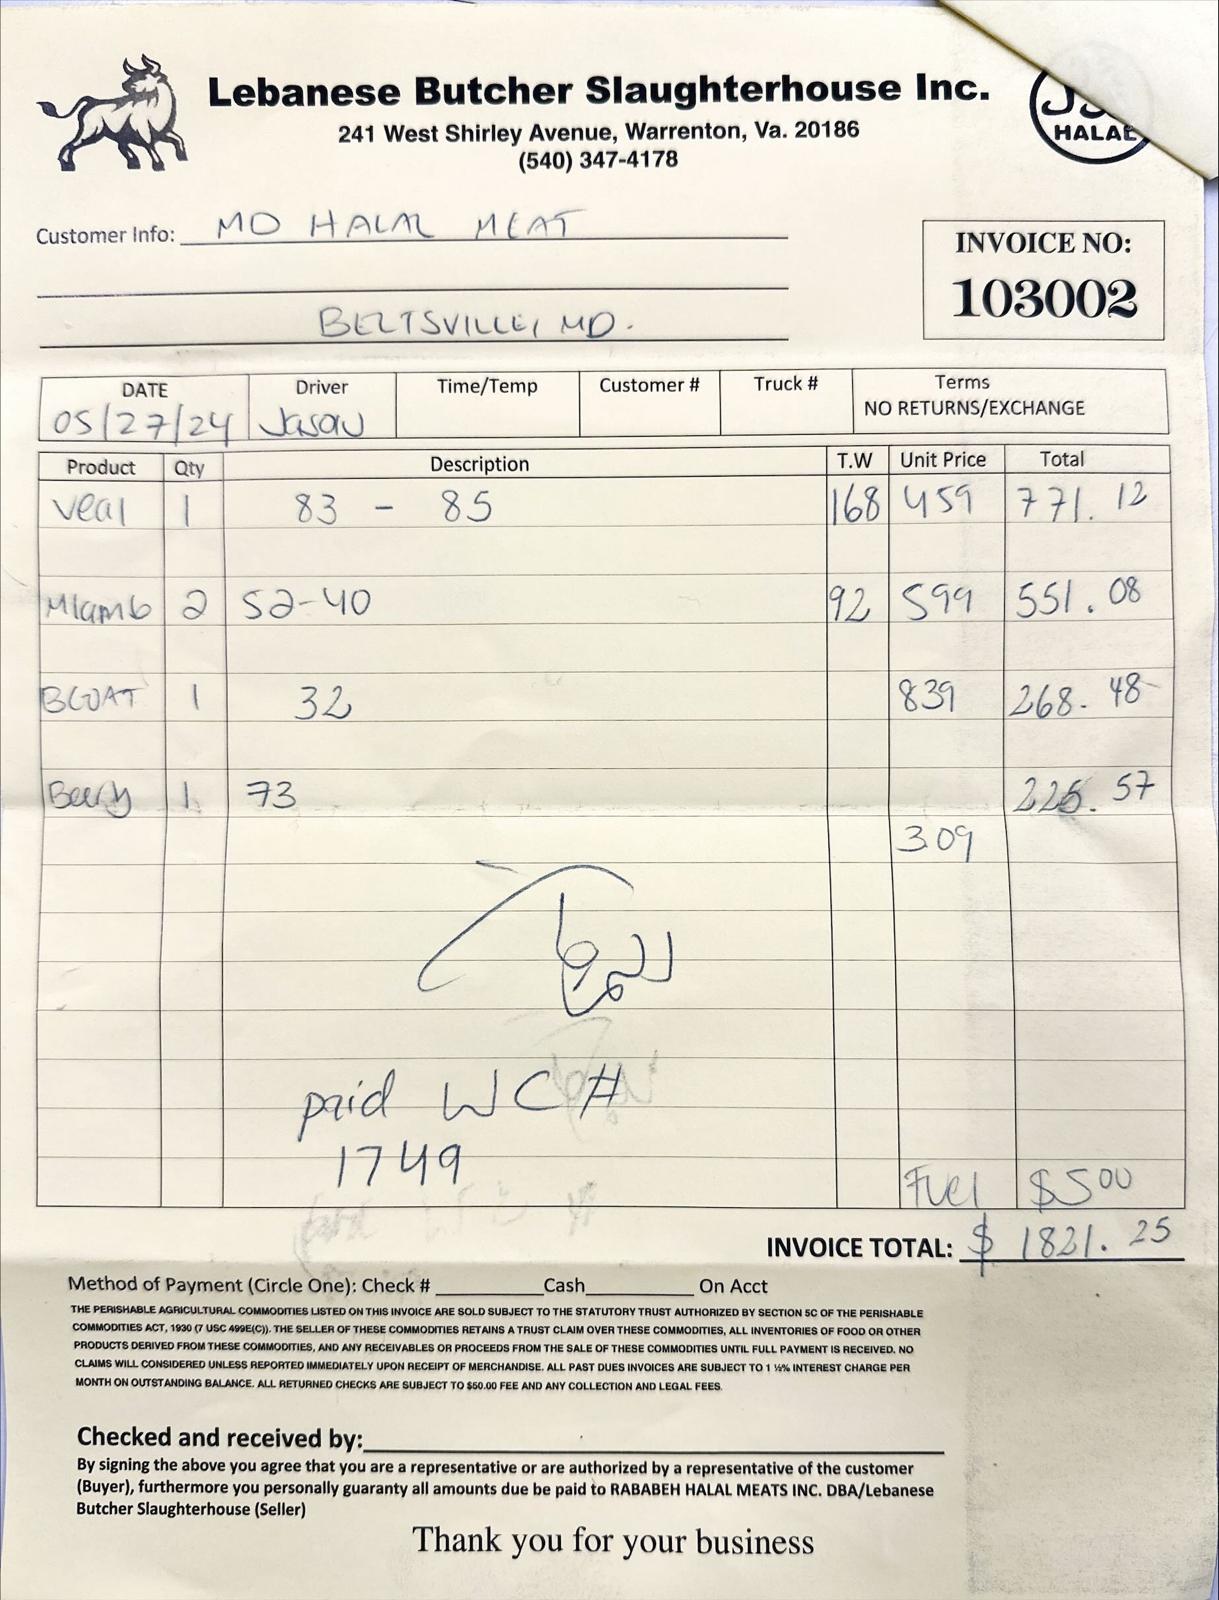 Lebanese Butcher Slaughterhouse Inc.
241 West Shirley Avenue, Warrenton, Va. 20186
(540) 347-4178
HALAL
Customer Info: MD HALAL MEAT
BELTSVILLE, MD.
INVOICE NO:
103002
DATE Driver Time/Temp Customer # Truck # Terms
05/27/24 Jason NO RETURNS/EXCHANGE
Product Qty Description T.W Unit Price Total
Veal 1 83 - 85 168 459 771.12
Mlamb 2 52-40 92 599 551.08
BGOAT 1 32 839 268.48
1 73 225.57
3.09
paid WC#
1749
Fuel $5.00
INVOICE TOTAL: $ 1821.25
Method of Payment (Circle One): Check # Cash On Acct
THE PERISHABLE AGRICULTURAL COMMODITIES LISTED ON THIS INVOICE ARE SOLD SUBJECT TO THE STATUTORY TRUST AUTHORIZED BY SECTION 5C OF THE PERISHABLE
COMMODITIES ACT, 1930 (7 USC 499E(C)). THE SELLER OF THESE COMMODITIES RETAINS A TRUST CLAIM OVER THESE COMMODITIES, ALL INVENTORIES OF FOOD OR OTHER
PRODUCTS DERIVED FROM THESE COMMODITIES, AND ANY RECEIVABLES OR PROCEEDS FROM THE SALE OF THESE COMMODITIES UNTIL FULL PAYMENT IS RECEIVED. NO
CLAIMS WILL CONSIDERED UNLESS REPORTED IMMEDIATELY UPON RECEIPT OF MERCHANDISE. ALL PAST DUES INVOICES ARE SUBJECT TO 1 ½% INTEREST CHARGE PER
MONTH ON OUTSTANDING BALANCE. ALL RETURNED CHECKS ARE SUBJECT TO $50.00 FEE AND ANY COLLECTION AND LEGAL FEES.
Checked and received by:
By signing the above you agree that you are a representative or are authorized by a representative of the customer
(Buyer), furthermore you personally guaranty all amounts due be paid to RABABEH HALAL MEATS INC. DBA/Lebanese
Butcher Slaughterhouse (Seller)
Thank you for your business